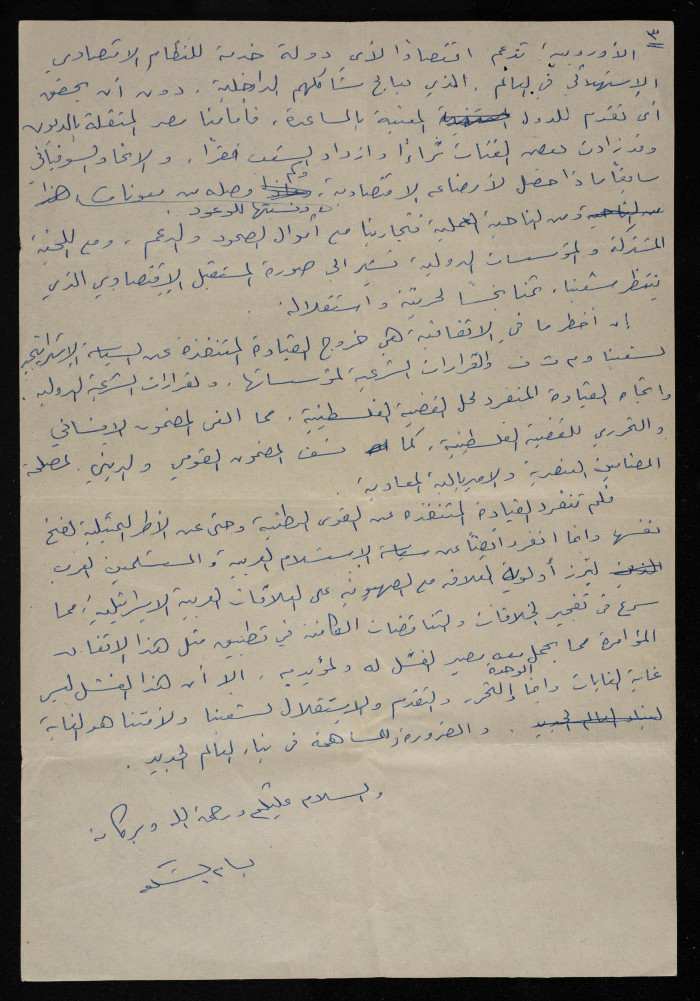 ٣
الأوروبية: تدعم اقتصاداً لأي دولة خدمة للنظام الاقتصادي
الاستهلاكي في العالم، الذي يعالج مشاكلهم الداخلية، دون أن يحقق
أي تقدم للدول المعنية بالمساعدة، فأمامنا مصر المثقلة بالديون
وقد زادت بعض الفئات ثراءً وازداد الشعب فقراً، والاتحاد السوفياتي
سابقاً ماذا حصل لأوضاعه الاقتصادية، وكم وصله من معونات، هذا
ونسبتها للوعود
ومن الناحية العملية فتجاربنا مع أموال الصمود والدعم، ومع اللجنة
المشتركة والمؤسسات الدولية تشير الى صورة المستقبل الاقتصادي الذي
ينتظر شعبنا، ثمناً بخساً لحريته واستقلاله.
إن أخطر ما في الاتفاقية هي خروج القيادة المتنفذة عن السياسة الاستراتيجية
لشعبنا و م ت ف والقرارات الشرعية لمؤسساتها، ولقرارات الشرعية الدولية.
واتجاه القيادة المنفرد لحل القضية الفلسطينية، مما ألغى المضمون الإنساني
والتحرري للقضية الفلسطينية، كما نسف المضمون القومي والديني لمصلحة
المضامين العنصرية والامبريالية المعادية.
فلم تنفرد القيادة المتنفذه عن القوى الوطنية وحتى عن الأطر التمثيلية لفتح
نفسها وانما انفرد أيضاً عن سياسة الاستسلام العربية والمستسلمين العرب
لتبرز أولوية العلاقه مع الصهيونية على العلاقات العربية الاسرائيلية، مما
سرع في تفجير الخلافات والتناقضات الكامنة في تطبيق مثل هذا الاتفاق
المؤامرة مما يحمل معه مصير الفشل له ولمؤيديه. الا أن هذا الفشل ليس
الوحدة
غاية الغايات وانما والتحرر والتقدم والاستقلال لشعبنا ولأمتنا هو الغاية
والضرورة للمساهمة في بناء العالم الجديد.
والسلام عليكم ورحمة الله وبركاته